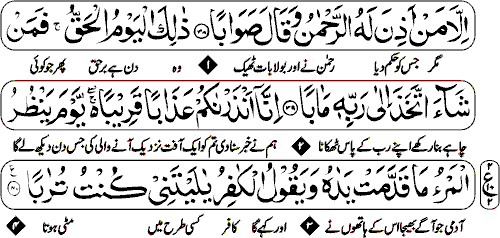 اِلَّا مَنْ اَذِنَ لَهُ الرَّحْمٰنُ وَقَالَ صَوَابًا ﴿۳۸﴾ ذٰلِكَ الْيَوْمُ الْحَقُّ ۚ فَمَنْ
مگر جس کو حکم دیا رحمٰن نے اور بولا بات ٹھیک ۱ وہ دن ہے برحق پھر جو کوئی
شَآءَ اتَّخَذَ اِلٰى رَبِّهٖ مَاٰبًا ﴿۳۹﴾ اِنَّآ اَنْذَرْنٰكُمْ عَذَابًا قَرِيْبًا ۖ يَّوْمَ يَنْظُرُ
چاہے بنا رکھے اپنے رب کے پاس ٹھکانا ۲ ہم نے خبر سنا دی تم کو ایک آفت نزدیک آنے والی کی جس دن دیکھ لے گا
الْمَرْءُ مَا قَدَّمَتْ يَدٰهُ وَيَقُوْلُ الْكٰفِرُ يٰلَيْتَنِيْ كُنْتُ تُرٰبًا ﴿۴۰﴾
آدمی جو آگے بھیجا اس کے ہاتھوں نے ۳ اور کہے گا کافر کسی طرح میں مٹی ہوتا